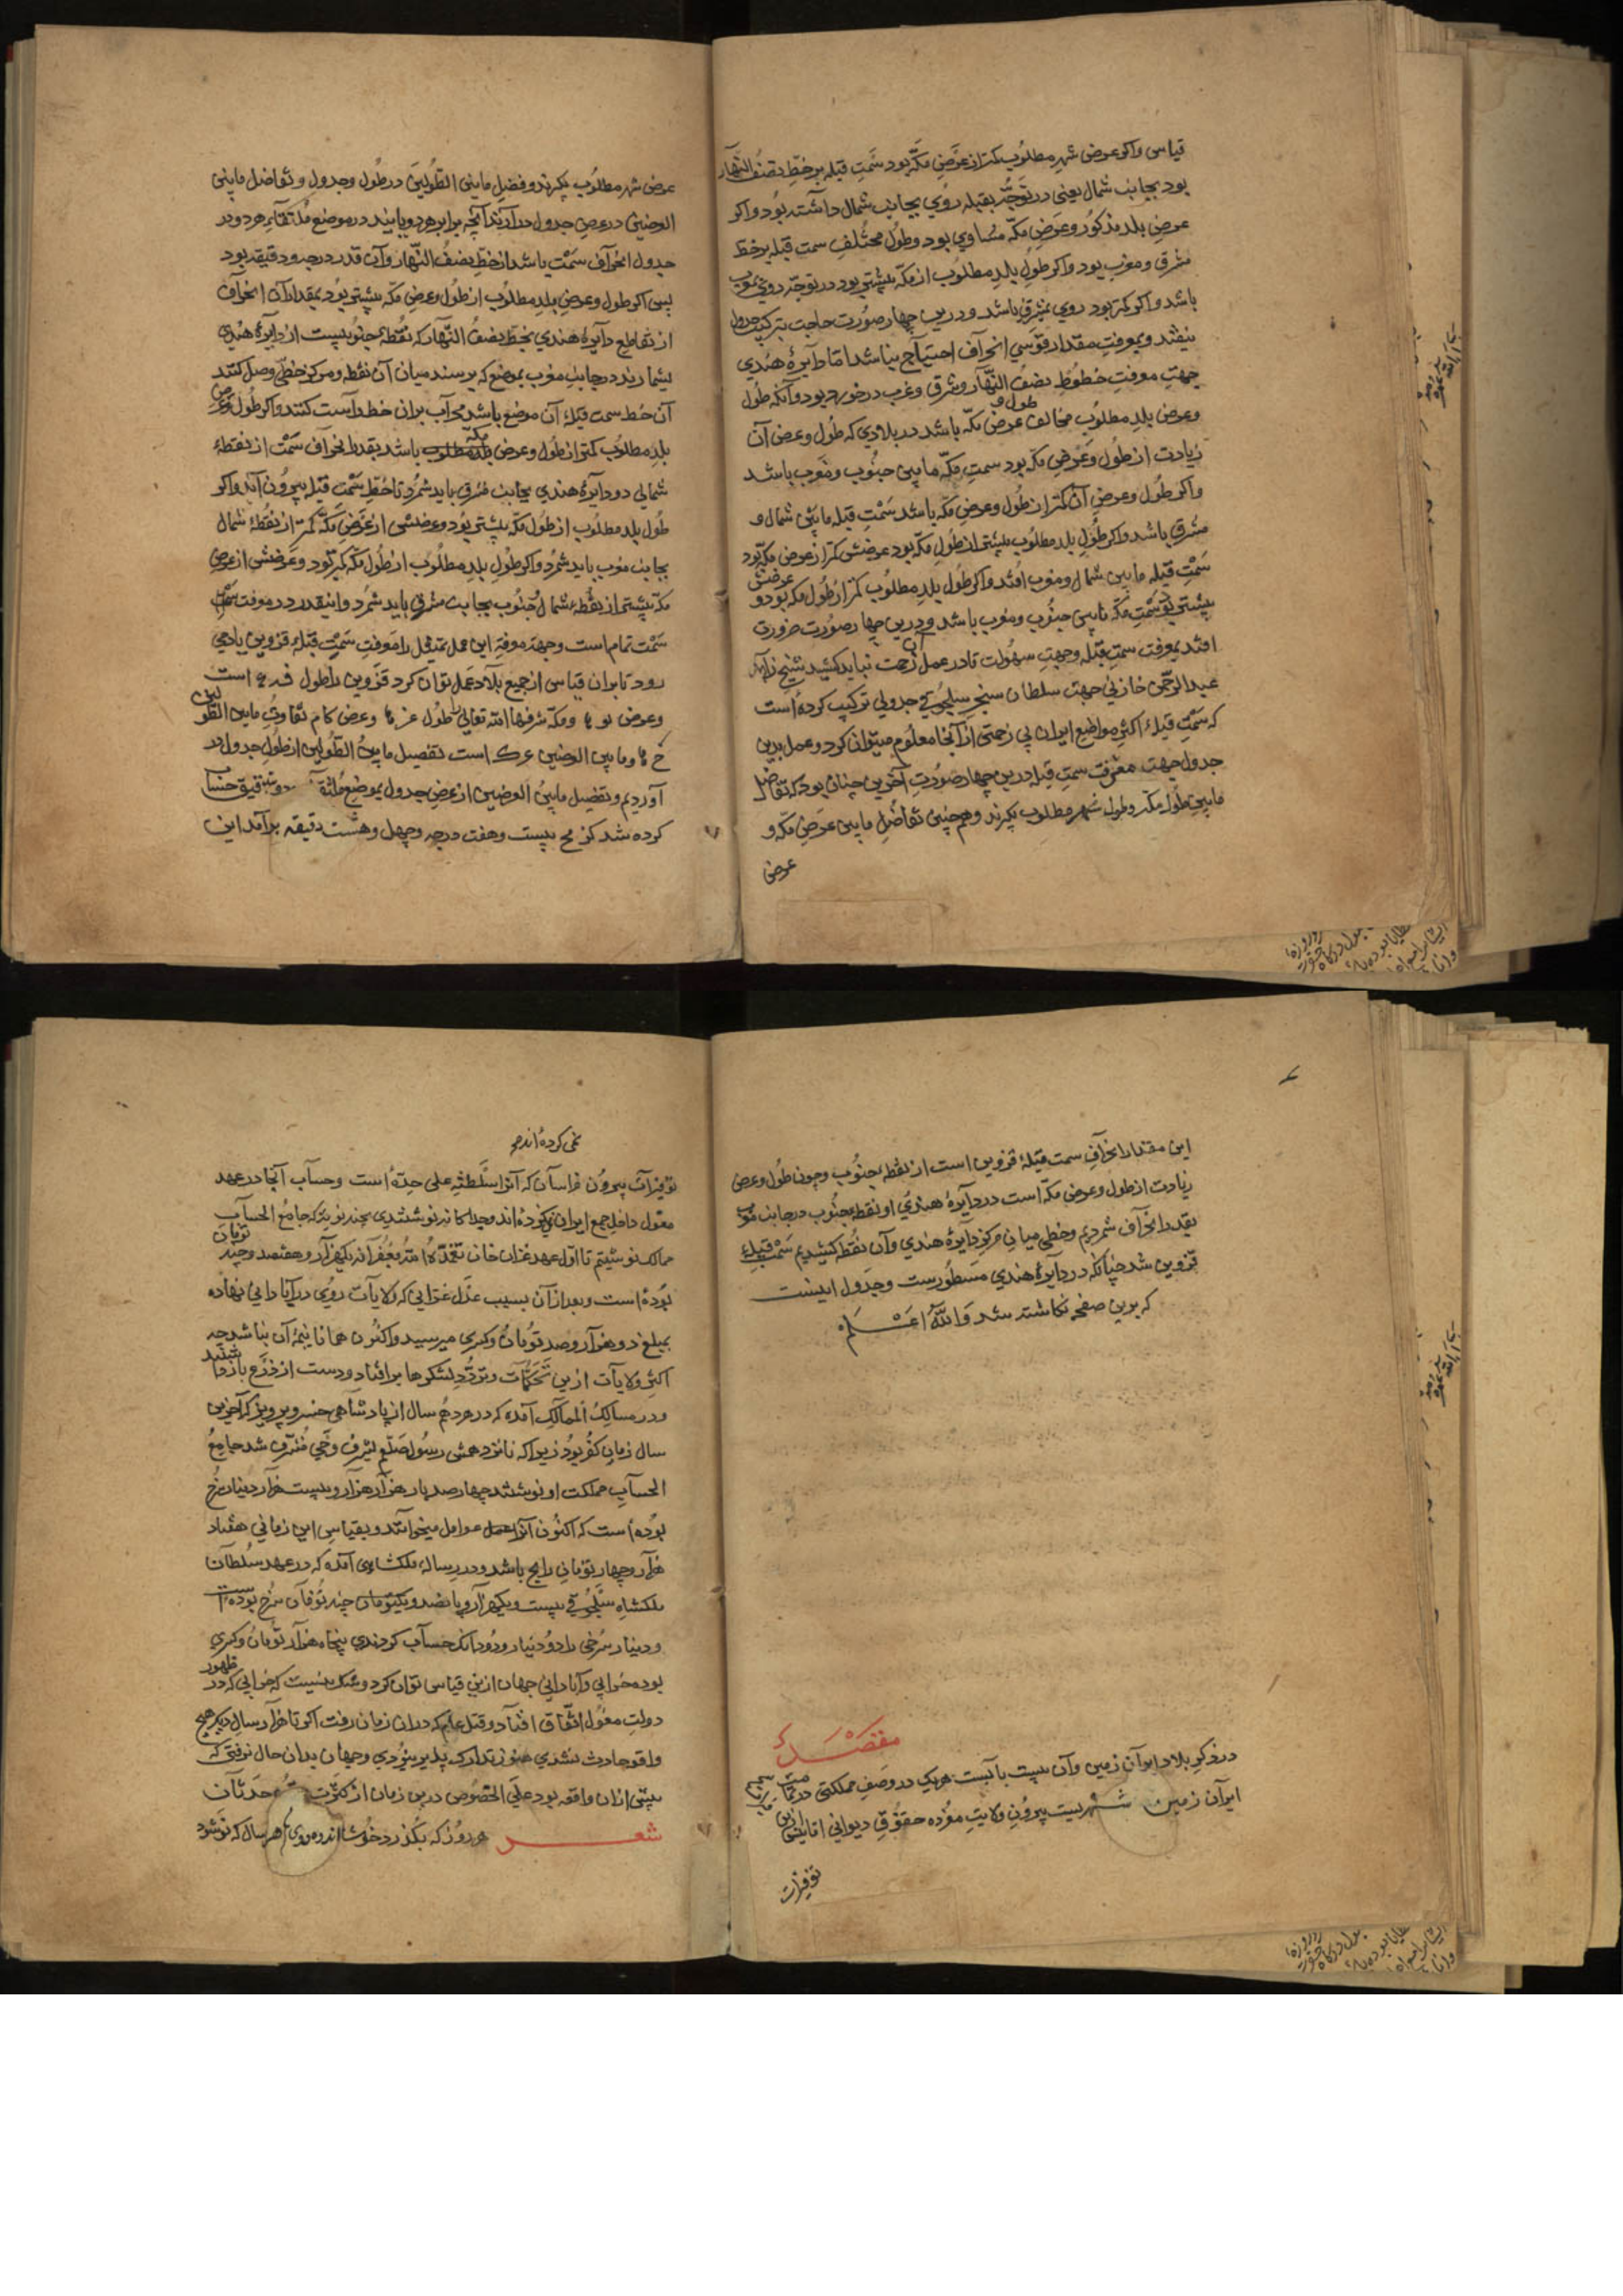 قیاس واکر عرض شهر مطلوب کمتر از عرض مکه بود سمت قبله بر خط نصف النهار
بود بجانب شمال یعنی در توجه بقبله روی بجانب شمال داشته بود واکر
عرض بلد مذکور و عرض مکه مساوی بود وطول مختلف سمت قبله بر خط
مشرق و مغرب بود واکر طول بلد مطلوب از مکه بیشتر بود در توجه روی بمغرب
باشد واکر کمتر بود روی بمشرق باشد و درین چهار صورت حاجت بترکیب جدول
نیفتد و بمعرفت مقدار قوسی انحراف احتیاج نباشد اما دایرهٔ هندی
جهت معرفت خطوط نصف النهار و شرق و غرب درخور بود وآنکه طول
وعرض بلد مطلوب مخالف طول و عرض مکه باشد در بلادی که طول وعرض آن
زیادت از طول وعرض مکه بود سمت مکه مابین جنوب و مغرب باشد
واکر طول وعرض آن کمتر از طول وعرض مکه باشد سمت قبله مابین شمال و
مشرق باشد واکر طول بلد مطلوب بیشتر از طول مکه بود عرضش کمتر از عرض مکه بود
سمت قبله مابین شمال ومغرب افتد واکر طول بلد مطلوب کمتر از طول مکه بود و عرضش
بیشتر بود سمت مکه مابین جنوب و مغرب باشد و درین چهار صورت ضرورت
افتد بمعرفت سمت قبله وجهت سهولت تا در عمل آن زحمت نباید کشید شیخ
عبد الرحمن خازنی جهت سلطان سنجر سلجوقی جدولی ترکیب کرده است
که سمت قبلهٔ اکثر مواضع ایران بی زحمتی از آنجا معلوم میتوان کرد و عمل بدین
جدول جهت معرفت سمت قبله درین چهار صورت آخرین چنان بود که تفاضل
مابین طول مکه وطول شهر مطلوب بکیرند وهم چنین تفاضل مابین عرض مکه و
عرض
عرض شهر مطلوب بکیرند و فضل مابین الطولین در طول وجدول و تفاضل مابین
العرضین در عرض جدول درآرند آنچه برابر هر دو یابند در موضع ملتقای هر دو در
جدول انحراف سمت باشد از خط نصف النهار وآن قدر درجه و دقیقه بود
پس اکر طول و عرض بلد مطلوب از طول وعرض مکه بیشتر بود بمقدار آن انحراف
از تقاطع دایرهٔ هندی بخط نصف النهار که نقطه جنوبیست از دایرهٔ هندی
بشمارند در جانب مغرب بموضع که برسند میان آن نقطه ومرکز خطی وصل کنند
آن خط سمت قبلهٔ آن موضع باشد محراب بران خط راست کنند واکر طول وعرض
بلد مطلوب کمتر از طول وعرض مکه باشد بقدر انحراف سمت از نقطهٔ
شمالی در دایرهٔ هندی بجانب شرق باید شمرد تا خط سمت قبله بیرون آید واکر
طول بلد مطلوب از طول مکه بیشتر بود و عرضش از عرض مکه کمتر از نقطهٔ شمال
بجانب مغرب باید شمرد واکر طول بلد مطلوب از طول مکه کمتر بود و عرضش از عرض
مکه بیشتر از نقطهٔ جنوب بجانب مشرق باید شمرد واینقدر در معرفت سمت
سمت تمام است وجهت معرفه این عمل تمثیل را معرفت سمت قبلهٔ قزوین یاد می
رود تا بران قیاس از جمیع بلاد عمل توان کرد قزوین را طول فه ع است
وعرض لو ما ومکه شرفها الله تعالی را طول عز ما وعرض کام تفاوت مابین الطولین
ح ما ومابین العرضین عرک است تفضیل مابین الطولین از طول جدول در
آوردیم وتفضیل مابین العرضین از عرض جدول بموضع ملتقا
کرده شد کز مح بیست وهفت درجه وچهل وهشت دقیقه برآمد این
این مقدار انحراف سمت قبلهٔ قزوین است از نقطه جنوب وچون طول وعرض
زیادت از طول وعرض مکه است در دایرهٔ هندی از نقطه جنوب در جانب مغرب
بقدر انحراف شمردیم وخطی میان مرکز دایرهٔ هندی وآن نقطه کشیدیم سمت قبلهٔ
قزوین شد چنانکه در دایرهٔ هندی مسطورست وجدول اینست
که برین صفحه نکاشته شد والله اعلم
مقصد
در ذکر بلاد ایران زمین وآن بیست بابست هر یک در وصف مملکتی
ایران زمین بیست بیرون ولایت مفرده حقوق دیوانی
توفیرات
نمی کرده اند
توفیرات بیرون خراسان که آنرا سلطنتی علی حده است وحساب آنجا در عهد
مغول داخل جمع ایران نکرده اند وجداکانه نوشتندی بچند نوبت که جامع الحساب
ممالک نوشتیم تا اول عهد غزان خان تغمده الله بغفرانه یکهزار وهفتصد وچند تومان
بوده است وبعد از آن بسبب عدل غزانی که ولایات روی در آبادانی نهاده
بمبلغ دو هزار وصد تومان وکسری میرسید واکنون همانا نیمهٔ آن نباشد چه
اکثر ولایات ازین تحکمات وتردد لشکرها برافتاد ودست از زرع بازداشتند
ودر مسالک الممالک آمده که در هژدهم سال از پادشاهی خسرو پرویز که آخرین
سال زمان کفر بود زیرا که نوزدهمش رسول صلعم بشرف وحی مشرف شد جامع
الحساب مملکت او نوشتند چهارصد بار هزار هزار وبیست هزار دینار سرخ
بوده است که اکنون آنرا عوامل میخوانند وبقیاس این زمانی هفتاد
هزار وچهار تومانی رایج باشد ودر رساله ملکشاهی آمده که در عهد سلطان
ملکشاه سلجوقی بیست ویکهزار وپانصد وچند تومان سرخ بوده است
ودینار سرخی را دو دینار ودو دانک حساب کردندی پنجاه هزار تومان وکسری
بوده خرابی وآبادانی جهان ازین قیاس توان کرد وشک نیست که خرابی که در ظهور
دولت مغول اتفاق افتاد وقتل عام که دران زمان رفت اکر تا هزار سال دیکر هیچ
واقعه حادث نشدی هنوز تدارک پذیر نبودی وجهان بدان حال نرفتی که
پیش ازان واقعه بود علی الخصوص درین زمان از کثرت حدثان
شعر هر روز که بکذرد هر سال که نو شود